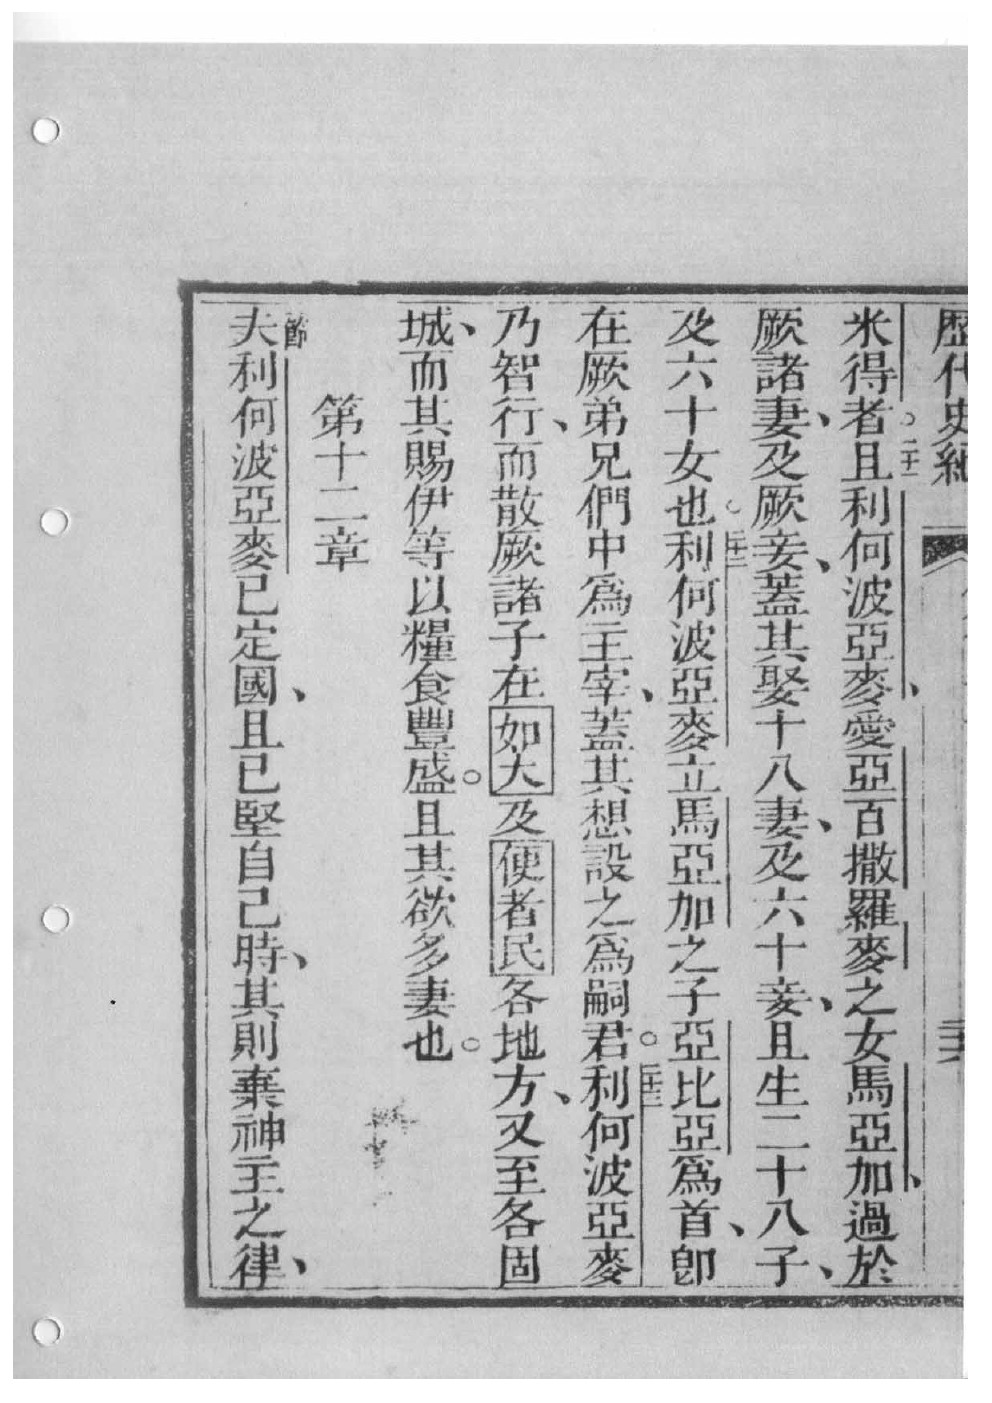 歷代史紀
米得者。二十一且利何波亞麥、愛亞百撒羅麥之女馬亞加、過於
厥諸妻、及厥妾、蓋其娶十八妻、及六十妾、且生二十八子、
及六十女也。二十二利何波亞麥立馬亞加之子亞比亞爲首、卽
在厥弟兄們中爲主宰、蓋其想設之爲嗣君。二十三利何波亞麥
乃智行、而散厥諸子在如大及便者民各地方、又至各固
城、而其賜伊等以糧食豐盛。且其欲多妻也。
第十二章
節夫利何波亞麥已定國、且已堅自己時、其則棄神主之律、